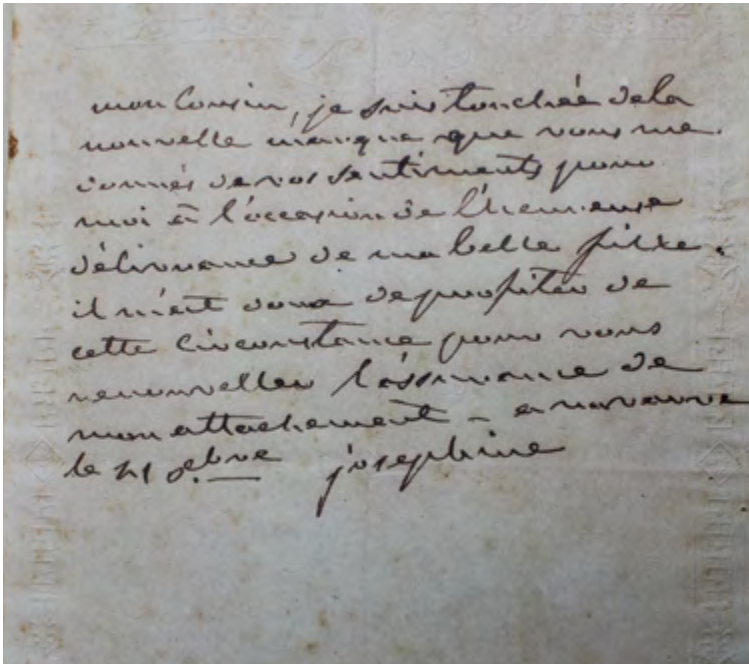 mon Cousin, je suis touchée de la
nouvelle marque que vous me
donnés de vos sentiments pour
moi à l'occasion de l'heureuse
délivrance de ma belle fille.
il m'est doux de profiter de
cette Circonstance pour vous
renouveller l'assurance de
mon attachement - a navarre
le 21 8.bre josephine